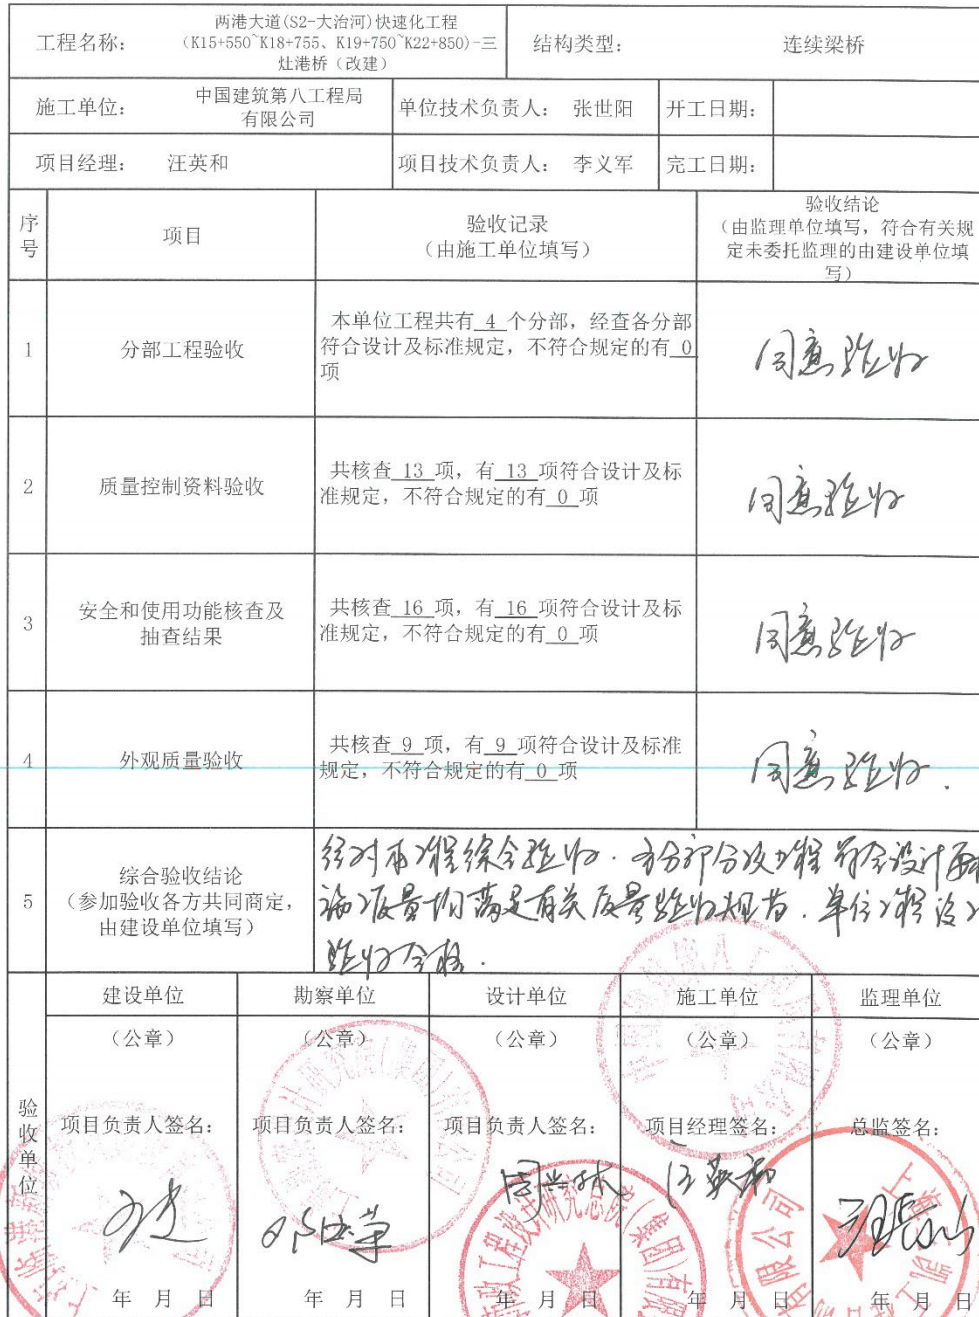 两港大道(S2-大治河)快速化工程
工程名称：
(K15+550~K18+755、K19+750~K22+850)-三
灶港桥（改建）
结构类型：
连续梁桥
施工单位：
中国建筑第八工程局
有限公司
单位技术负责人：
张世阳
开工日期：
项目经理：
汪英和
项目技术负责人：
李义军
完工日期：
序
号
项目
验收记录
（由施工单位填写）
验收结论
（由监理单位填写，符合有关规
定未委托监理的由建设单位填
写）
1
分部工程验收
本单位工程共有 4 个分部，经查各分部
符合设计及标准规定，不符合规定的有 0
项
同意验收
2
质量控制资料验收
共核查 13 项，有 13 项符合设计及标
准规定，不符合规定的有 0 项
同意验收
3
安全和使用功能核查及
抽查结果
共核查 16 项，有 16 项符合设计及标
准规定，不符合规定的有 0 项
同意验收
4
外观质量验收
共核查 9 项，有 9 项符合设计及标准
规定，不符合规定的有 0 项
同意验收.
5
综合验收结论
（参加验收各方共同商定，
由建设单位填写）
经对本工程综合验收.各分部分项工程符合设计要求
质量均满足有关质量验收规范.单位工程
验收合格.
建设单位
勘察单位
设计单位
施工单位
监理单位
（公章）
（公章）
（公章）
（公章）
（公章）
验
收
单
位
项目负责人签名：
项目负责人签名：
项目负责人签名：
项目经理签名：
总监签名：
汪英和
年 月 日
年 月 日
年 月 日
年 月 日
年 月 日